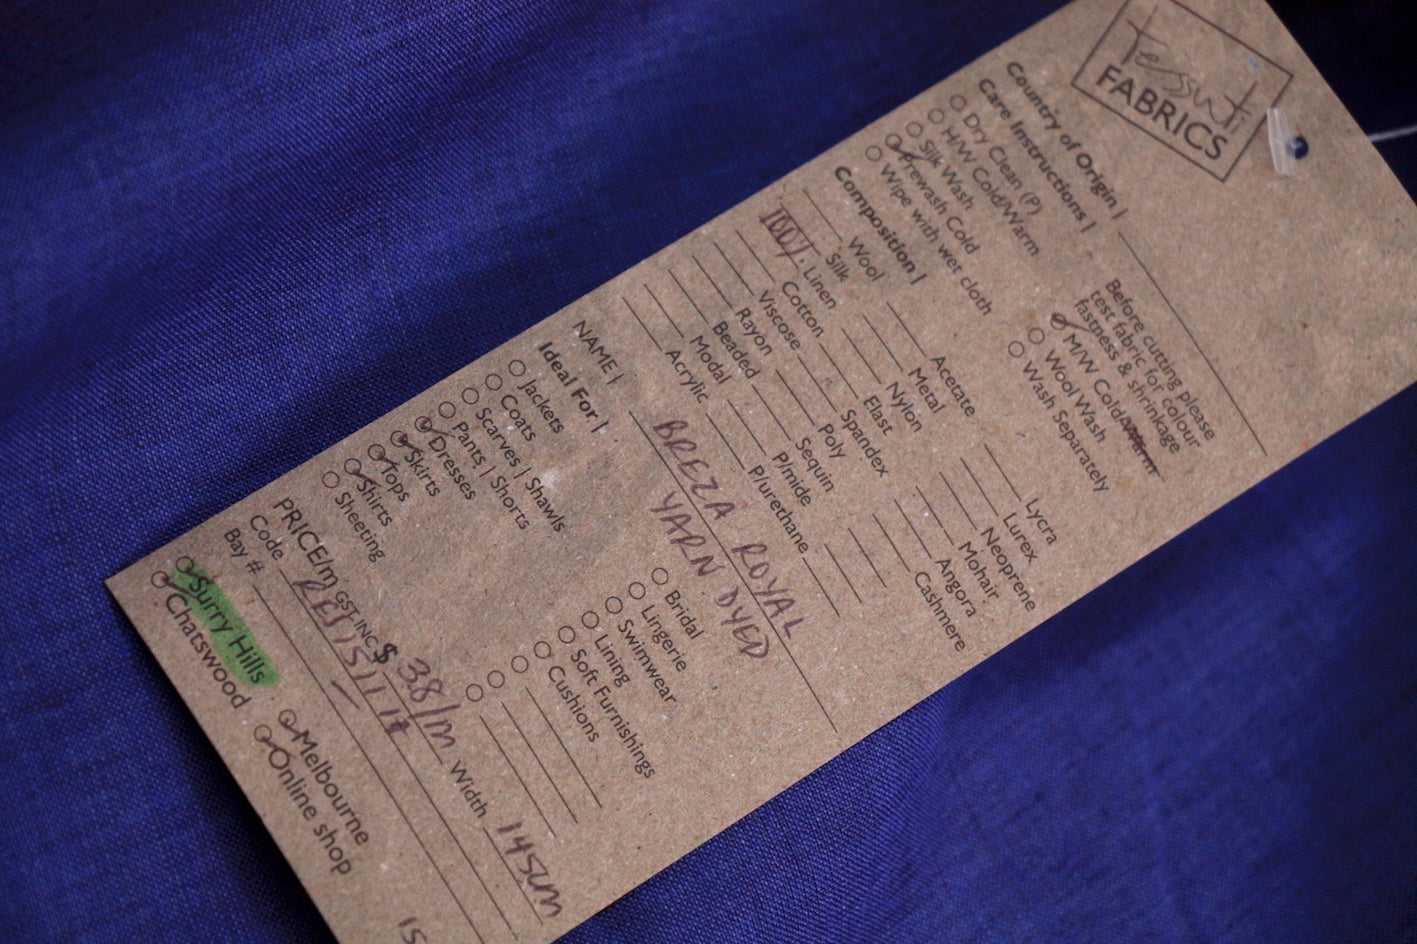 Tessuti
FABRICS
Country of Origin |
Care Instructions |
Before cutting please
test fabric for colour
fastness & shrinkage
Dry Clean (P)
M/W Cold/Warm
H/W Cold/Warm
Wool Wash
Silk Wash
Wash Separately
Prewash Cold
Wipe with wet cloth
Composition |
Wool Acetate Lycra
Silk Metal Lurex
100% Linen Nylon Neoprene
Cotton Elast Mohair
Viscose Spandex Angora
Rayon Poly Cashmere
Beaded Sequin
Modal P/mide
Acrylic P/urethane
NAME | BREZA ROYAL
YARN DYED
Ideal For |
Jackets Bridal
Coats Lingerie
Scarves | Shawls Swimwear
Pants | Shorts Lining
Dresses Soft Furnishings
Skirts Cushions
Tops
Shirts
Sheeting
PRICE/m GST INC $ 38/m Width 145cm
Code
Bay #
Surry Hills Melbourne
Chatswood Online shop